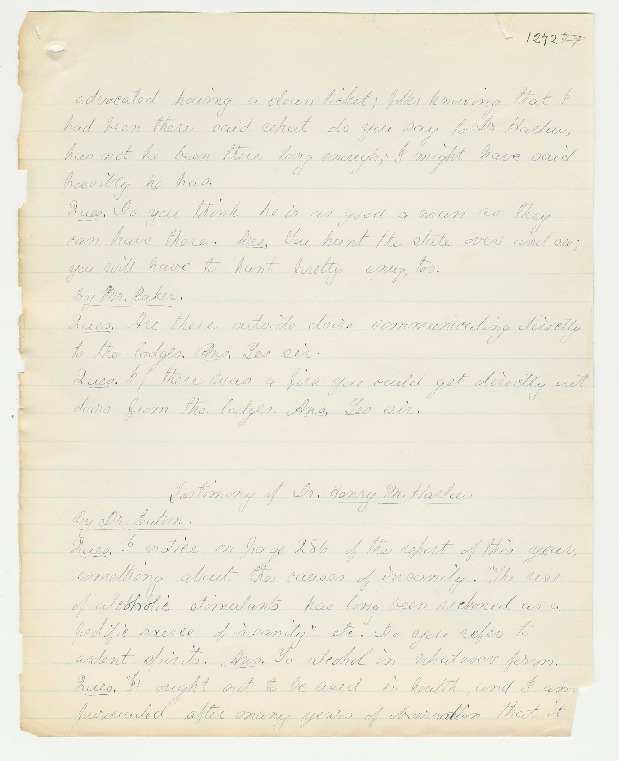 127277
advocated having a clean ticket; folks knowing that I
had been there said what do you say to Dr Harlow,
has not he been there long enough; I might have said
possibly he has.
Ques. Do you think he is as good a man as they
can have there. Ans. You hunt the state over and see;
you will have to hunt pretty snug, too.
By Mr. Baker.
Ques. Are there outside doors communicating directly
to the lodges. Ans. Yes sir.
Ques. If there was a fire you could get directly out
doors from the lodges. Ans. Yes sir.
Testimony of Dr. Henry M. Harlow
By Dr. Eaton.
Ques. I notice on page 286 of the report of this year,
something about the causes of insanity. "The use
of alcoholic stimulants has long been reckoned as a
prolific source of insanity" etc. Do you refer to
ardent spirits. Ans. To alcohol in whatever form.
Ques. "It ought not to be used in health, and I am
persuaded after many years of observation that it